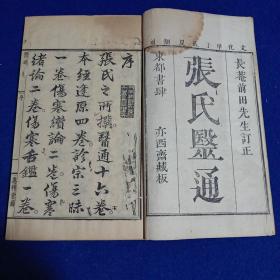 文化甲子夏新刻
長菴前田先生訂正
張氏醫通
東都書肆 亦西齋藏板
序
張氏之所撰醫通十六卷
本經逢原四卷診宗三昧
一卷傷寒纘論二卷傷寒
緒論二卷傷寒舌鑑一卷